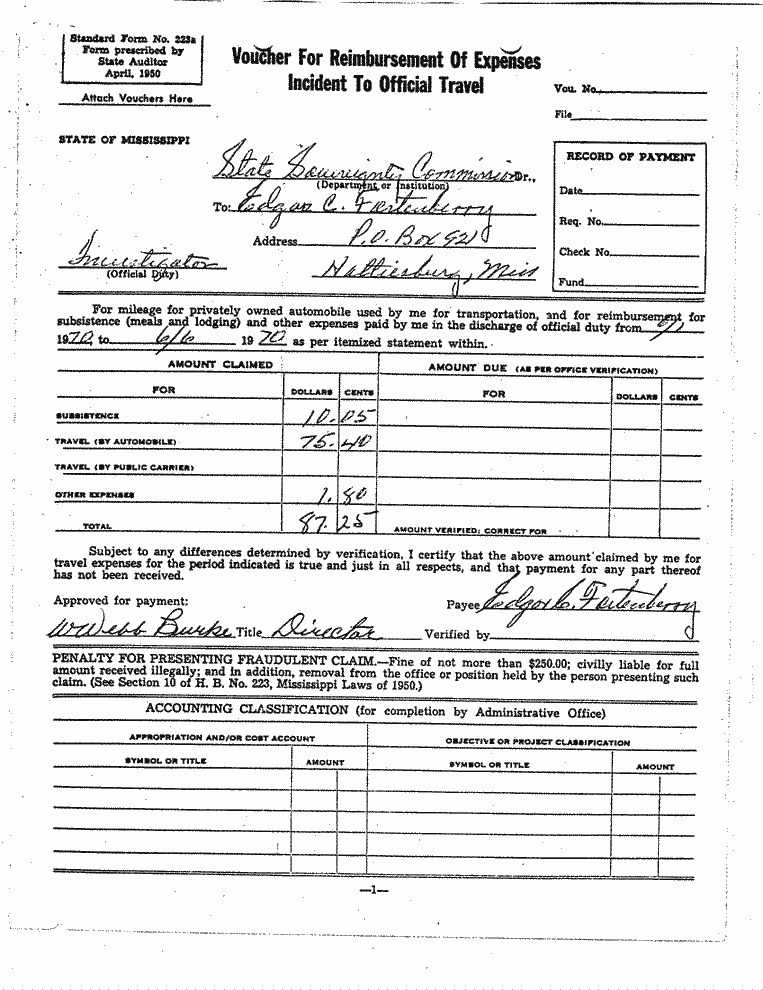 Standard Form No. 223a
Form prescribed by
State Auditor
April, 1950
Attach Vouchers Here
Voucher For Reimbursement Of Expenses
Incident To Official Travel
Vou. No.
File
STATE OF MISSISSIPPI
State Sovereignty Commission Dr.,
(Department or Institution)
To: Edgar C. Fortenberry
Address P.O. Box 921
Investigator
(Official Duty)
Hattiesburg, Miss
RECORD OF PAYMENT
Date
Req. No.
Check No.
Fund
For mileage for privately owned automobile used by me for transportation, and for reimbursement for
subsistence (meals and lodging) and other expenses paid by me in the discharge of official duty from 6/1
1970 to 6/6 1970 as per itemized statement within.
AMOUNT CLAIMED AMOUNT DUE (AS PER OFFICE VERIFICATION)
FOR DOLLARS CENTS FOR DOLLARS CENTS
SUBSISTENCE 10.05
TRAVEL (BY AUTOMOBILE) 75.40
TRAVEL (BY PUBLIC CARRIER)
OTHER EXPENSES 1.80
TOTAL 87.25 AMOUNT VERIFIED; CORRECT FOR
Subject to any differences determined by verification, I certify that the above amount claimed by me for
travel expenses for the period indicated is true and just in all respects, and that payment for any part thereof
has not been received.
Approved for payment: Payee Edgar C. Fortenberry
W Webb Burke Title Director Verified by
PENALTY FOR PRESENTING FRAUDULENT CLAIM.—Fine of not more than $250.00; civilly liable for full
amount received illegally; and in addition, removal from the office or position held by the person presenting such
claim. (See Section 10 of H. B. No. 223, Mississippi Laws of 1950.)
ACCOUNTING CLASSIFICATION (for completion by Administrative Office)
APPROPRIATION AND/OR COST ACCOUNT OBJECTIVE OR PROJECT CLASSIFICATION
SYMBOL OR TITLE AMOUNT SYMBOL OR TITLE AMOUNT
—1—